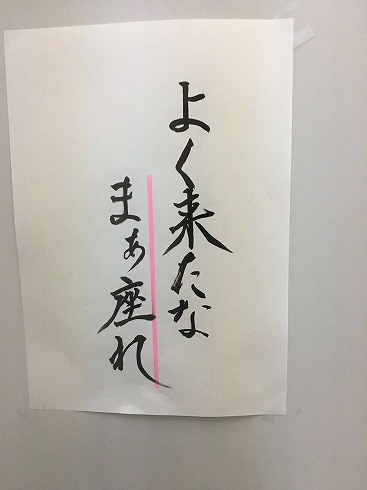 よく来たな
まぁ座れ